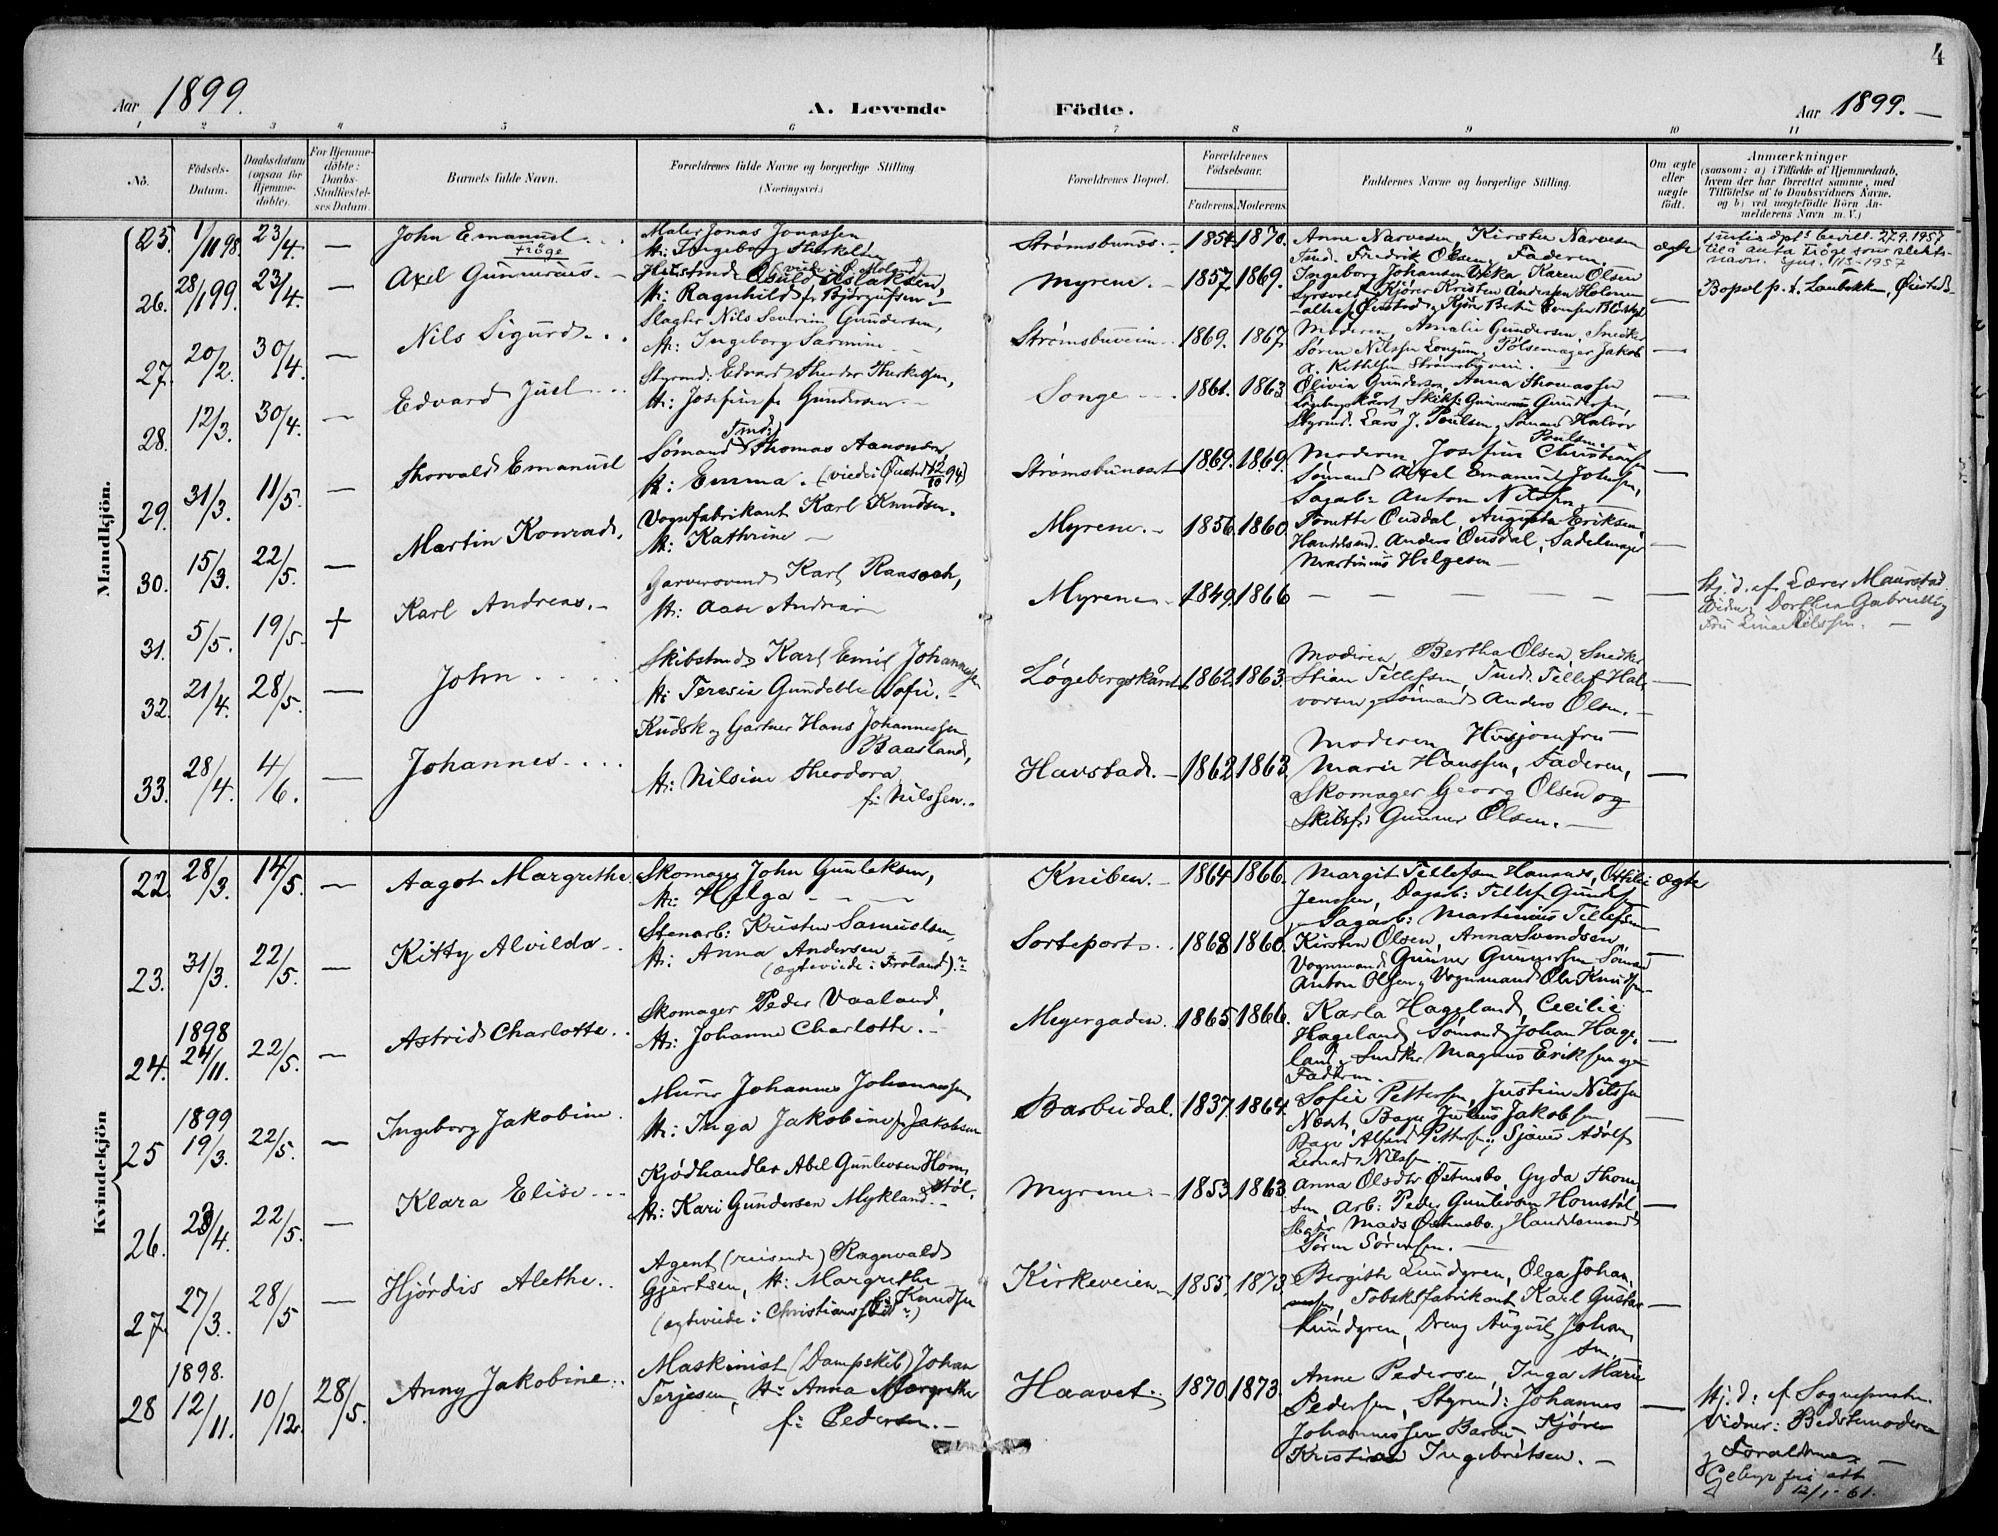 4
Aar 1899.
A. Levende Födte.
Aar 1899. —
1 2 3 4 5 6 7 8 9 10 11
No.
Födsels-
Datum.
Daabsdatum
(ogsaa for
Hjemme-
döbte).
For Hjemme-
döbte:
Daabs-
Stadfæstel-
ses Datum.
Barnets fulde Navn.
Forældrenes fulde Navne og borgerlige Stilling
(Næringsvei.)
Forældrenes Bopæl.
Forældrenes
Födselsaar.
Faderens. Moderens.
Faddernes Navne og borgerlige Stilling.
Om ægte
eller
uægte
födt.
Anmærkninger
(saasom: a) i Tilfælde af Hjemmedaab,
hvem der har forrettet samme, med
Tilföielse af to Daabsvidners Navne.
og b) ved uægtefödte Börn An-
melderens Navn m. V.)
Mandkjön.
25. 1/11 98. 23/4. — John Emanuel
Fröge
Maler Jonas Jonassen
H: Ingeborg Therkelsen
Strømsbunes. 1854. 1870.
Anne Narvesen, Kirsten Narvesen
Smd. Fredrik Olsen, Faderen.
ægte
bevill. 27.9.1957
til å anta Fröge som slekts-
navn. 1957
26. 28/1 99. 23/4. — Axel Gunnerius. —
H: Ragnhild f. Björgufsen. —
Myrene. — 1857. 1869.
Ingeborg Johansen, Karen Olsen
Kristen Andersen Holmen
—
Bopæl p. t. Løubekken, Øiestad
27. 20/2. 30/4. — Nils Sigurd
Slagter Nils Severin Gundersen,
H: Ingeborg Sarmine —
Strømsbuveien 1869. 1867.
Moderen, Amalie Gundersen, Snedker
Søren Nilssen Longum, Pølsemager Jakob
A. Kittelsen Strømsbuveien.
—
28. 12/3. 30/4. — Edvard Juel
Styrmd: Edvard Theodor Therkelsen,
H: Josefine f. Gundersen. —
Songe 1861. 1863
Olivia Gundersen, Anna Thomassen
Løgebergskåret, Skibsf: Gunnerius Gundersen,
Styrmd. Lars J. Poulsen, Sømand Halvor
Poulsen.
—
29. 31/3. 11/5. — Thorvald Emanuel
Sømand Thomas Aanonsen,
H: Emma. (viede i Øiestad 12/10 94)
Strømsbuneset 1869. 1869.
Moderen, Josefine Christiansen
Sømand Axel Emanuel Johnsen,
Sagarb: Anton Nilsen
—
30. 15/3. 22/5. — Martin Konrad.
Vognfabrikant Karl Knudsen.
H: Kathrine —
Myrene. — 1856. 1860.
Tomette Ousdal, Augusta Eriksen
Handelsmd. Anders Ousdal, Sadelmager
Martinius Helgesen —
—
31. 5/5. 19/5. + Karl Andreas. —
Garversvend Karl Raasoch,
H: Aase
Myrene 1849. 1866
— — — — — —
Hj. d. af Lærer Maurstad.
Vidner: Dorthea Gabrielsen
Fru Lina Nilssen. —
32. 21/4. 28/5. — John
Skibstmd Karl Emil Johannessen
H: Teresie Gundelle Sofie. —
Løgebergskåret 1862. 1863.
Moderen, Bertha Olsen, Snedker
Stian Tellefsen, Tmd. Tellef Hal-
vorsen, Sømand Anders Olsen. —
—
33. 28/4. 4/6. — Johannes
Kudsk og Gartner Hans Johannessen
Baasland,
H: Nilsine Theodora
f: Nilssen.
Havstad. — 1862. 1863.
Moderen, Husjomfru
Marie Hanssen, Faderen,
Skomager Georg Olsen og
Skibsf: Gunner Olsen. —
—
Kvindekjön
22. 28/3. 14/5. — Aagot Margrethe.
Skomager John Gunleksen,
H: Helga —
Kniben. — 1864. 1866.
Margit Tellefsen Hansnes, Ottilie
Jenssen, Dagarb: Tellef Gundersen
Sagarb: Martinius Tellefsen
ægte
23. 31/3. 22/5. — Kitty Alvilda
Stenarb: Kristen Samuelsen,
H: Anna Andersen
(ægteviede i Froland).
Sorteport 1868. 1860.
Kirsten Olsen, Anna Svendsen,
Vognmand Gunner Gunnersen, Sømand
Anton Olsen, Vognmand Ole Knudsen
—
24. 1898 24/11. 22/5. — Astrid Charlotte.
Skomager Peder Vaaland,
H: Johanne Charlotte. —
Meyergaden. 1865. 1866.
Karla Hageland, Cecilie
Hageland, Sømand Johan Hage-
land, Snedker Magnus Eriksen og
Faderen.
—
25 1899 19/3. 22/5. — Ingeborg Jakobine.
Murer Johannes Johannessen,
H: Inga Jakobine f. Jakobsen
Barbudal. 1837. 1864.
Sofie Pettersen, Justine Nilssen
Næset, Bager Julius Jakobsen,
Bager Alfred Pettersen, Sjauer Adolf
Leonard Nilssen.
—
26. 23/4. 22/5. — Klara Elise
Kjødhandler Abel Gunlevsen Homs-
støl.
H: Kari Gundersen Mykland. —
Myrene. — 1853. 1863.
Anna Olsdtr Østensbo, Gyda Thom-
sen, Arb: Peder Gunlevsen Homstøl,
Slagter Mads Østensbo, Handelsmand
Søren Sørensen. —
—
27. 27/3. 28/5. — Hjørdis Alethe.
Agent (reisende) Ragnvald
Gjertsen, H: Margrethe
f. Knudsen
(ægteviede i Christiansfeld)
Kirkeveien 1855. 1873.
Bergitte Lundgren, Olga Johan-
nesen, Tobaksfabrikant Karl Gustav
Lundgren, Dreng August Johan-
sen.
—
28 1898. 12/11. 10/12. 28/5. Anny Jakobine
Maskinist (Dampskib) Johan
Terjesen, H: Anna Margrethe
f: Pedersen. —
Haavet. 1870. 1873.
Anne Pedersen, Inga Marie
Pedersen, Styrmd: Johannes
Johannessen Barbu, Kjører
Kristian Ingebretsen. —
—
Hj. d: af Sognepresten.
Vidner: Bedstemoderen
og Forældrene —
Gebyrfri att
12/1- 61.